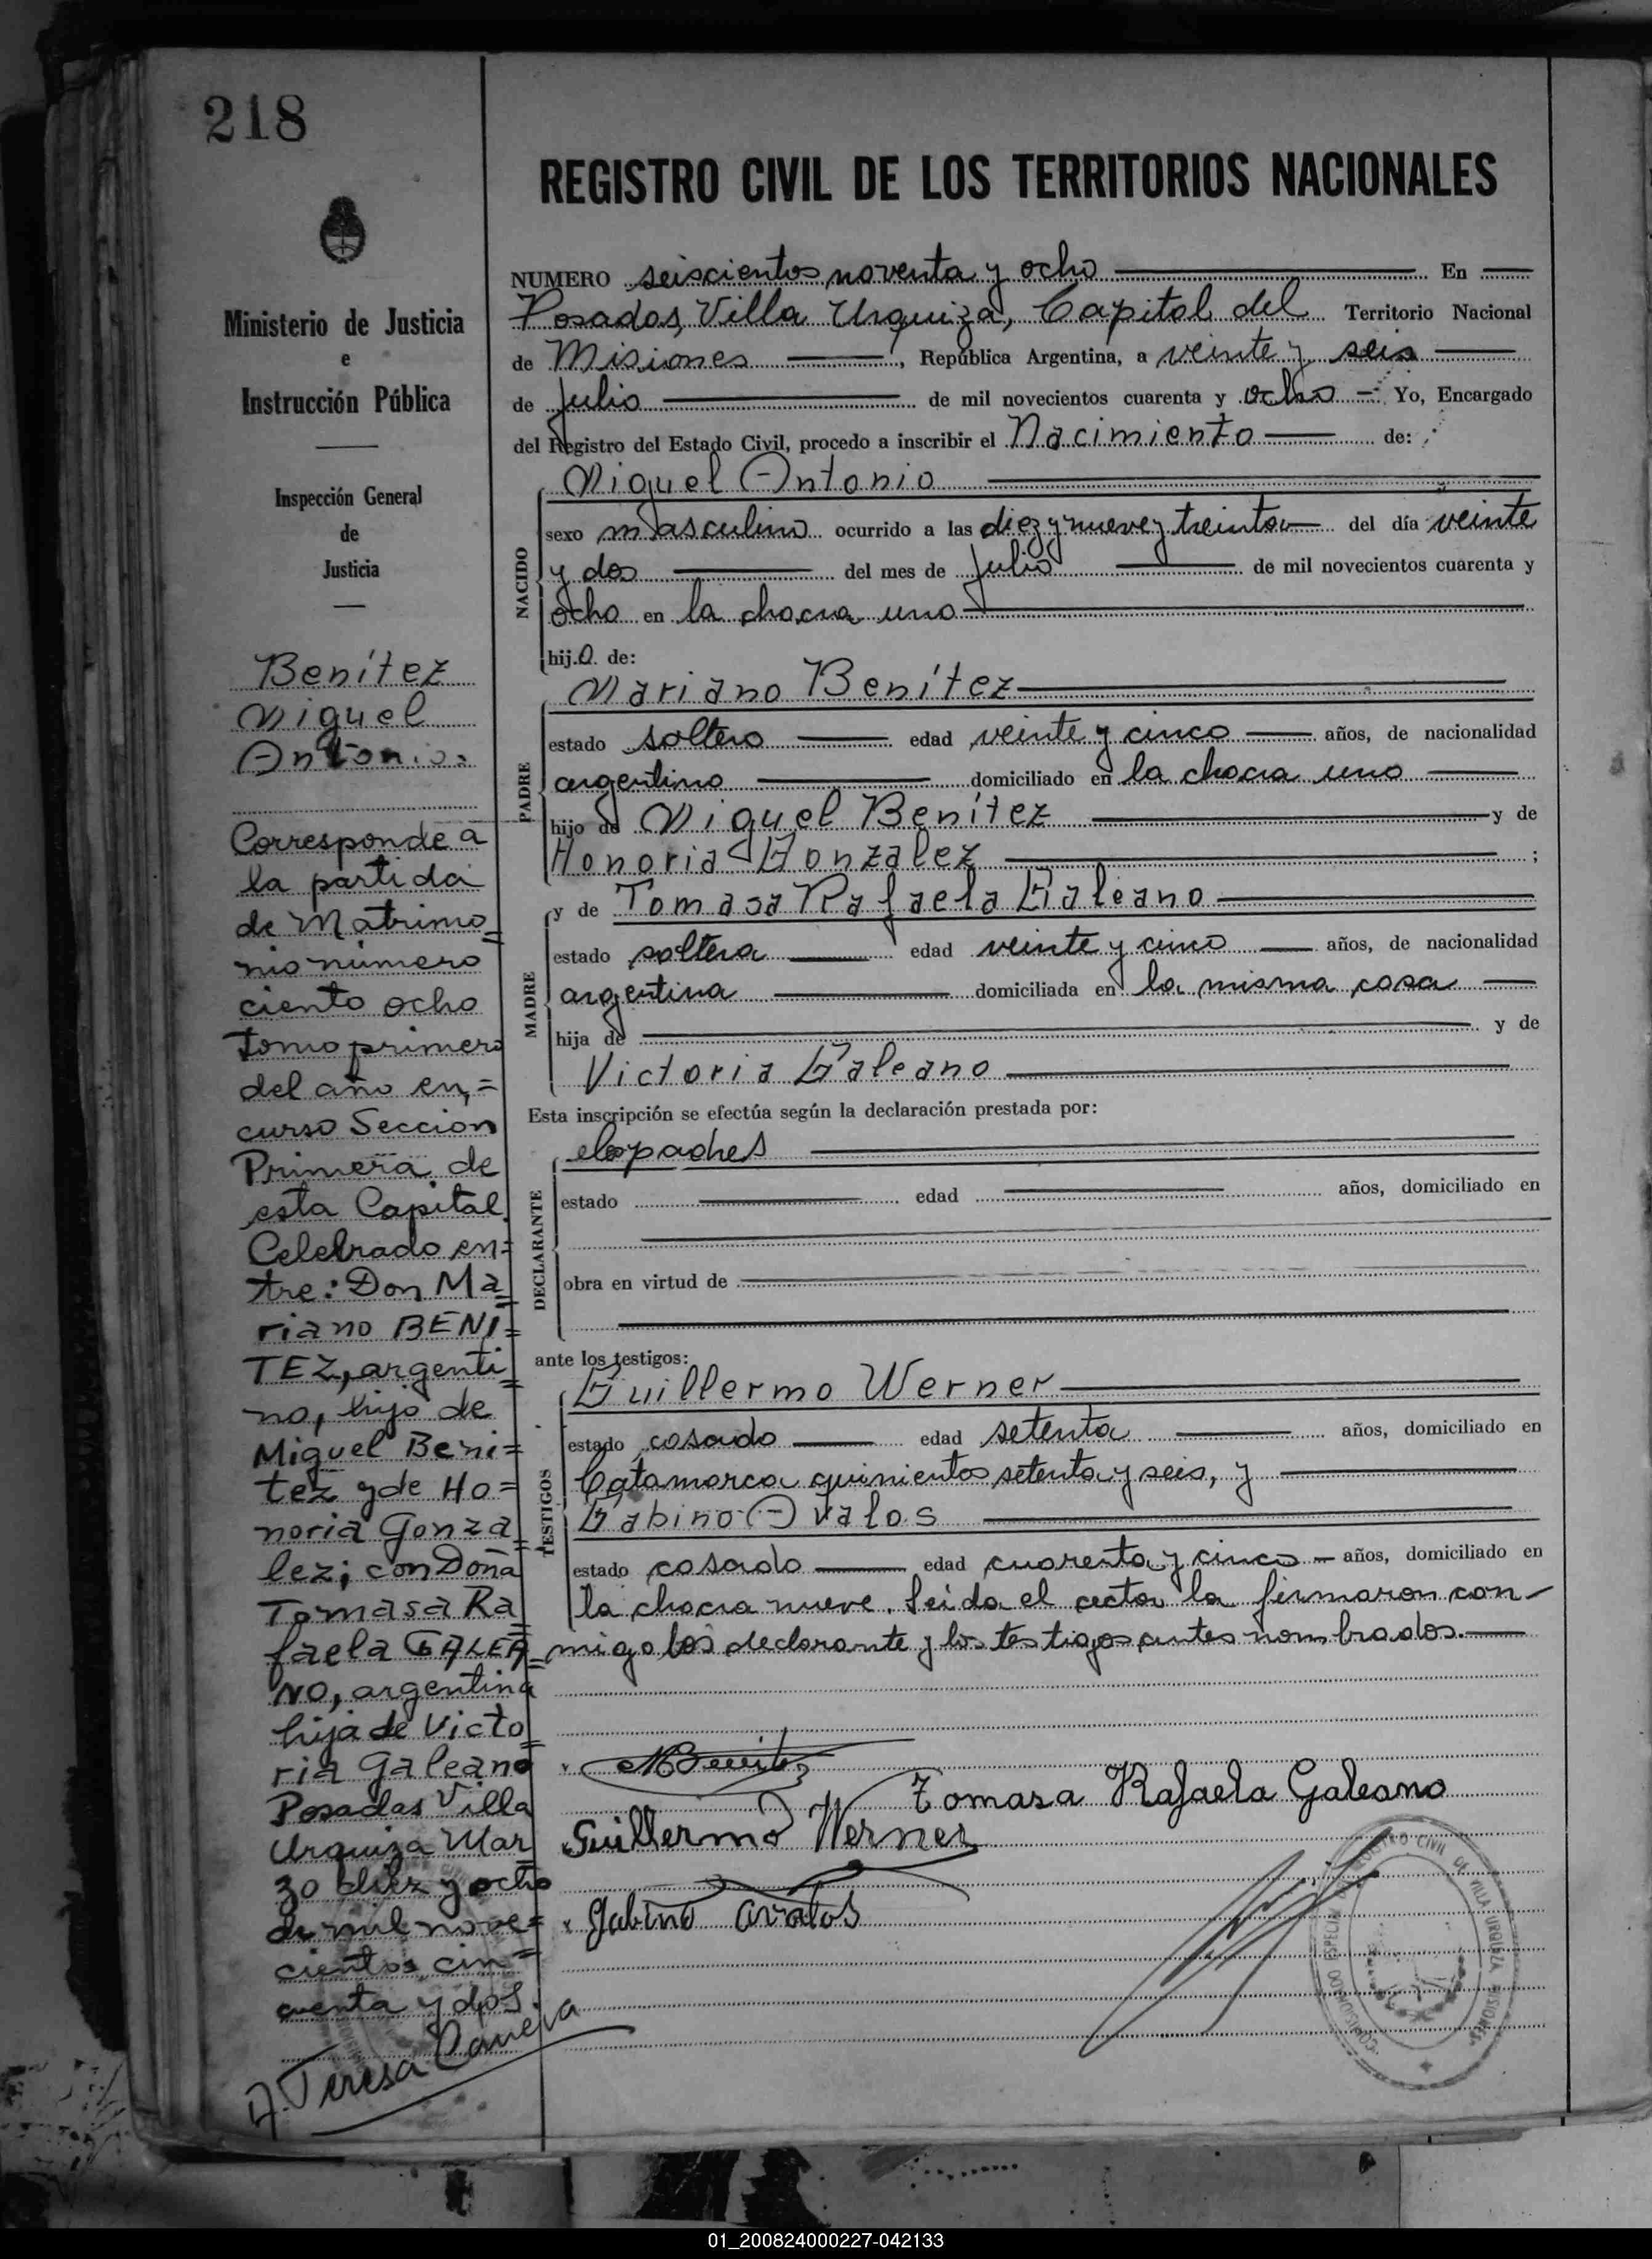 218
Ministerio de Justicia
e
Instrucción Pública
Inspección General
de
Justicia
Benítez
Miguel
Antonio.
Corresponde a
la partida
de Matrimo=
nio número
ciento ocho
Tomo primero
del año en=
curso Sección
Primera de
esta Capital
Celebrado en=
tre: Don Ma=
riano BENI=
TEZ, argenti=
no, hijo de
Miguel Beni=
tez y de Ho=
noria Gonza=
lez; con Doña
Tomasa Ra=
faela GALEA=
NO, argentina
hija de Victo=
ria Galeano
Posadas Villa
Urquiza Mar=
zo diez y ocho
de mil nove=
cientos cin=
cuenta y dos.
REGISTRO CIVIL DE LOS TERRITORIOS NACIONALES
NUMERO seiscientos noventa y ocho En
Posadas, Villa Urquiza, Capital del Territorio Nacional
de Misiones, República Argentina, a veinte y seis
de Julio de mil novecientos cuarenta y ocho Yo, Encargado
del Registro del Estado Civil, procedo a inscribir el Nacimiento de:
NACIDO
Miguel Antonio
sexo masculino ocurrido a las diez y nueve y treinta del día veinte
y dos del mes de Julio de mil novecientos cuarenta y
ocho en la chacra uno
hijo de:
PADRE
Mariano Benítez
estado soltero edad veinte y cinco años, de nacionalidad
argentino domiciliado en la chacra uno
hijo de Miguel Benítez y de
Honoria Gonzalez ;
MADRE
y de Tomasa Rafaela Galeano
estado soltera edad veinte y cinco años, de nacionalidad
argentina domiciliada en la misma casa
hija de y de
Victoria Galeano
Esta inscripción se efectúa según la declaración prestada por:
DECLARANTE
padres
estado edad años, domiciliado en
obra en virtud de
ante los testigos:
TESTIGOS
Guillermo Werner
estado casado edad setenta años, domiciliado en
Catamarca quinientos setenta y seis, y
Gabino Avalos
estado casado edad cuarenta y cinco años, domiciliado en
la chacra nueve. Leida el acta la firmaron con-
migo los declarante y los testigos antes nombrados.
M Benitez
Tomasa Rafaela Galeano
Guillermo Werner
Gabino Avalos
REGISTRO CIVIL DE VILLA URQUIZA MISIONES
A. Teresa
01_200824000227-042133